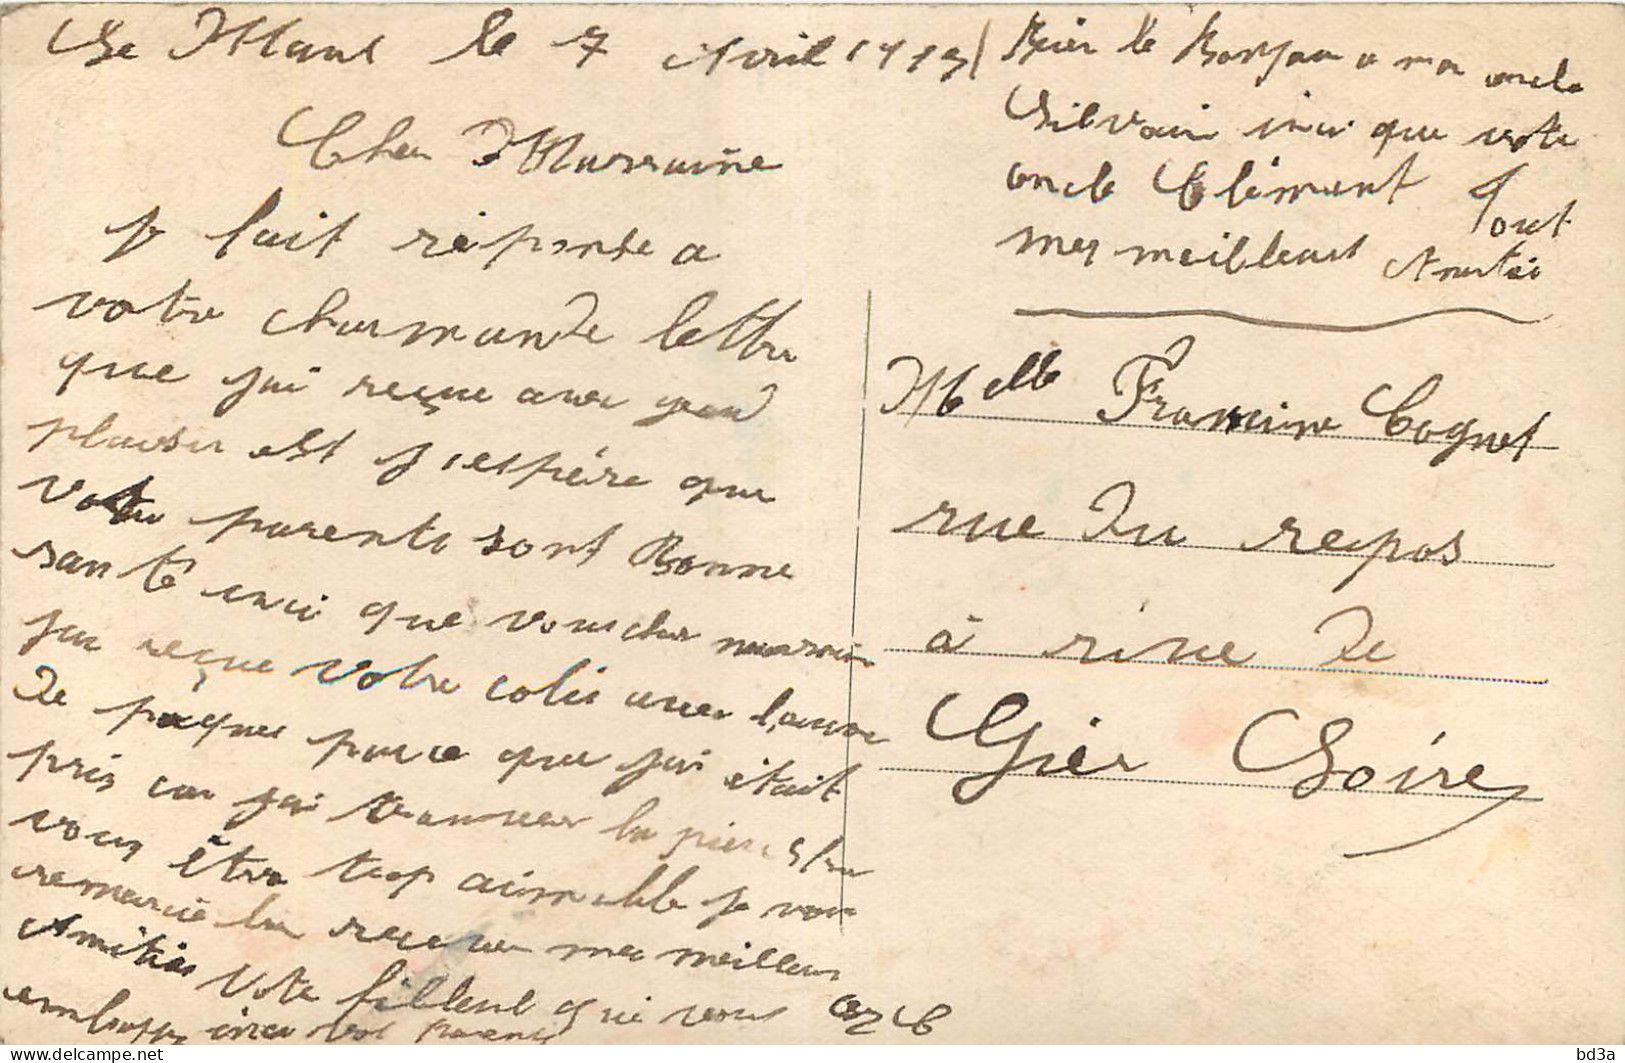 Le Mans le 7 Avril 1915
Cher Marraine
Je fait réponse a
votre charmande lettre
que jai reçue avec grand
plaisir est jiespére que
votre parents sont Bonne
santé insi que vous cher marraine
jai reçue votre colis avec
de pâques parce que jai était
pris car jai
vous être trop aimable je vous
remercié recever mes meilleur
Amitiés Vote filleul qui vous
embrasse insi vos parents
Bien le Bonjour a mon oncle
Silvain insi que vote
oncle Clément Tout
mes meilleurs Amitié
Melle Francine Cognet
rue du repos
à rive de
Gier Loire
bd3a